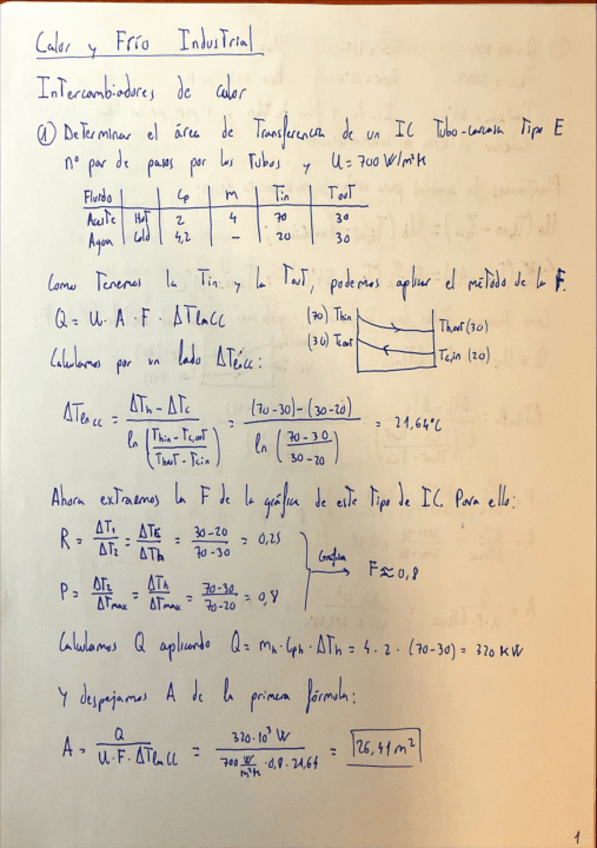 Calor y Frío Industrial
Intercambiadores de calor
① Determinar el área de transferencia de un IC Tubo-carcasa Tipo E
nº par de pasos por los tubos y U = 700 W/m²K
Fluido | | Cp | m | Tin | Tout
Aceite | Hot | 2 | 4 | 70 | 30
Agua | Cold | 4,2 | - | 20 | 30
Como tenemos la Tin y la Tout, podemos aplicar el método de la F.
Q = U · A · F · ΔTlnCC
(70) Thin
Thout (30)
(30) Tcout
Tc,in (20)
Calculamos por un lado ΔTlncc:
ΔTlncc = (ΔTh - ΔTc) / ln((Thin - Tc,out) / (Thout - Tcin)) = ((70-30) - (30-20)) / ln((70-30) / (30-20)) = 21,64ºC
Ahora extraemos la F de la gráfica de este tipo de IC. Para ello:
R = ΔT1 / ΔT2 = ΔTc / ΔTh = (30-20) / (70-30) = 0,25
Gráfica
F ≈ 0,8
P = ΔT2 / ΔTmax = ΔTh / ΔTmax = (70-30) / (70-20) = 0,8
Calculamos Q aplicando Q = mh · Cph · ΔTh = 4 · 2 · (70-30) = 320 KW
Y despejamos A de la primera fórmula:
A = Q / (U · F · ΔTlnCC) = 320·10³ W / (700 W/m²K · 0,8 · 21,64) = 26,41 m²
1